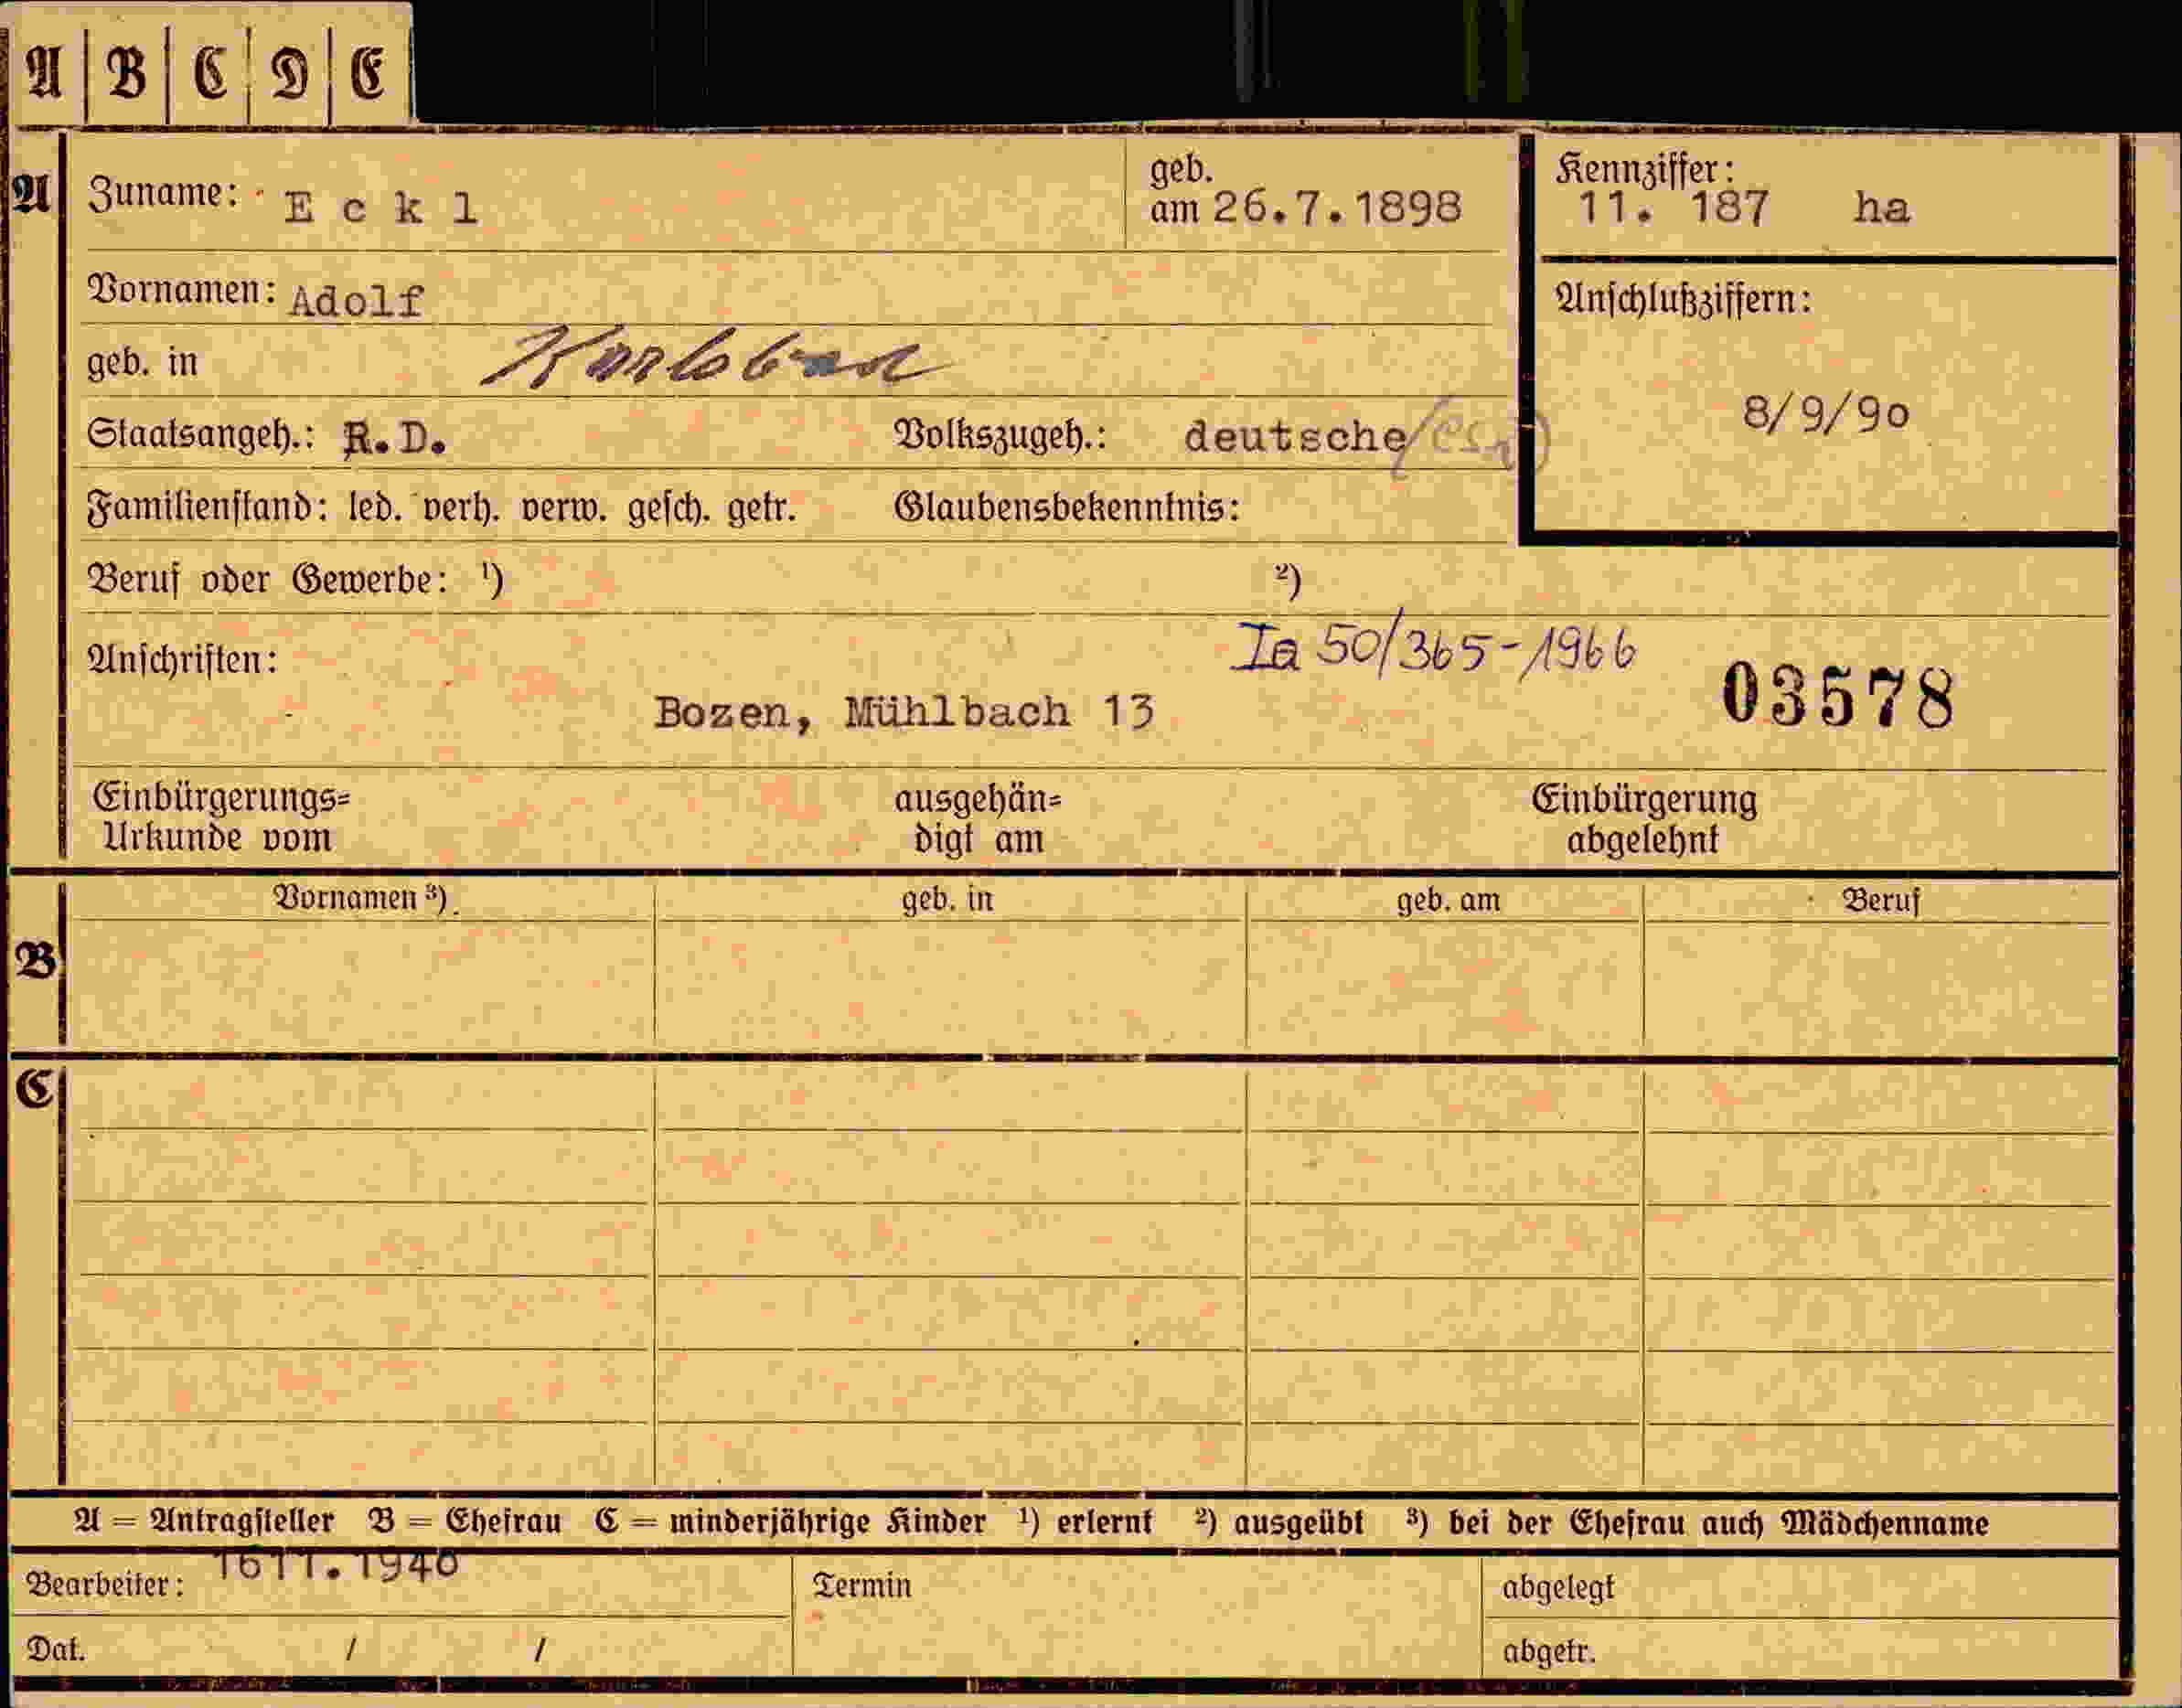 A B C D E
A Zuname: E c k l geb. am 26.7.1898 Kennziffer: 11. 187 ha
Vornamen: Adolf Anschlußziffern:
geb. in Karlsbad
8/9/90
Staatsangeh.: R.D. Volkszugeh.: deutsche
Familienstand: led. verh. verw. gesch. getr. Glaubensbekenntnis:
Beruf oder Gewerbe: ¹) ²)
Ia 50/365-1966
Anschriften: 03578
Bozen, Mühlbach 13
Einbürgerungs= ausgehän= Einbürgerung
Urkunde vom digt am abgelehnt
Vornamen ³) geb. in geb. am Beruf
B
C
A = Antragsteller B = Ehefrau C = minderjährige Kinder ¹) erlernt ²) ausgeübt ³) bei der Ehefrau auch Mädchenname
Bearbeiter: 1611.1940 Termin abgelegt
Dat. / / abgetr.